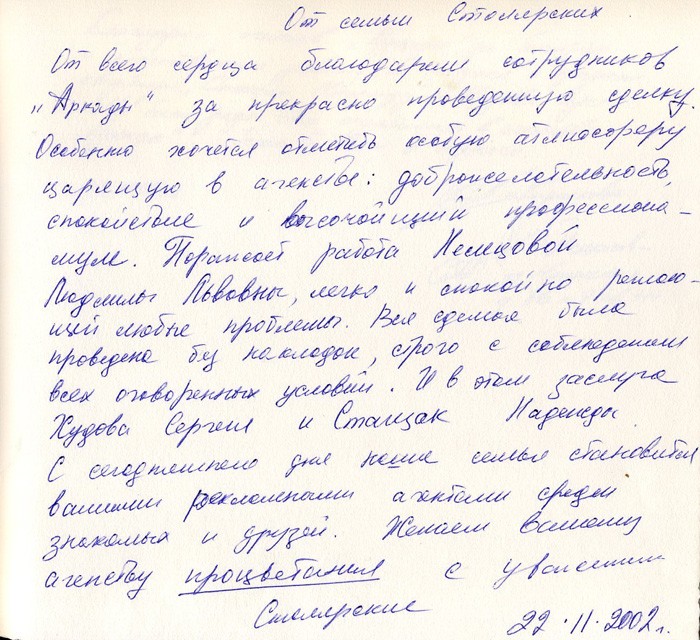 От семьи Столярских
От всего сердца благодарим сотрудников
„Аркады" за прекрасно проведенную сделку.
Особенно хочется отметить особую атмосферу
царящую в агенстве: доброжелательность,
спокойствие и высочайщий профессиона-
лизм. Поражает работа Немцовой
Людмилы Львовны, легко и спокойно решаю-
щей любые проблемы. Вся сделка была
проведена без накладок, строго с соблюдением
всех оговоренных условий. И в этом заслуга
Худова Сергея и Надежды
С сегодняшнего дня наша семья становится
вашими рекламными агентами среди
знакомых и друзей. Желаем вашему
агенству процветания с уважением
Столярские
22.11.2002г.